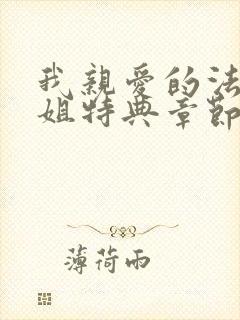 我親愛的法
姐特典章節
薄荷雨